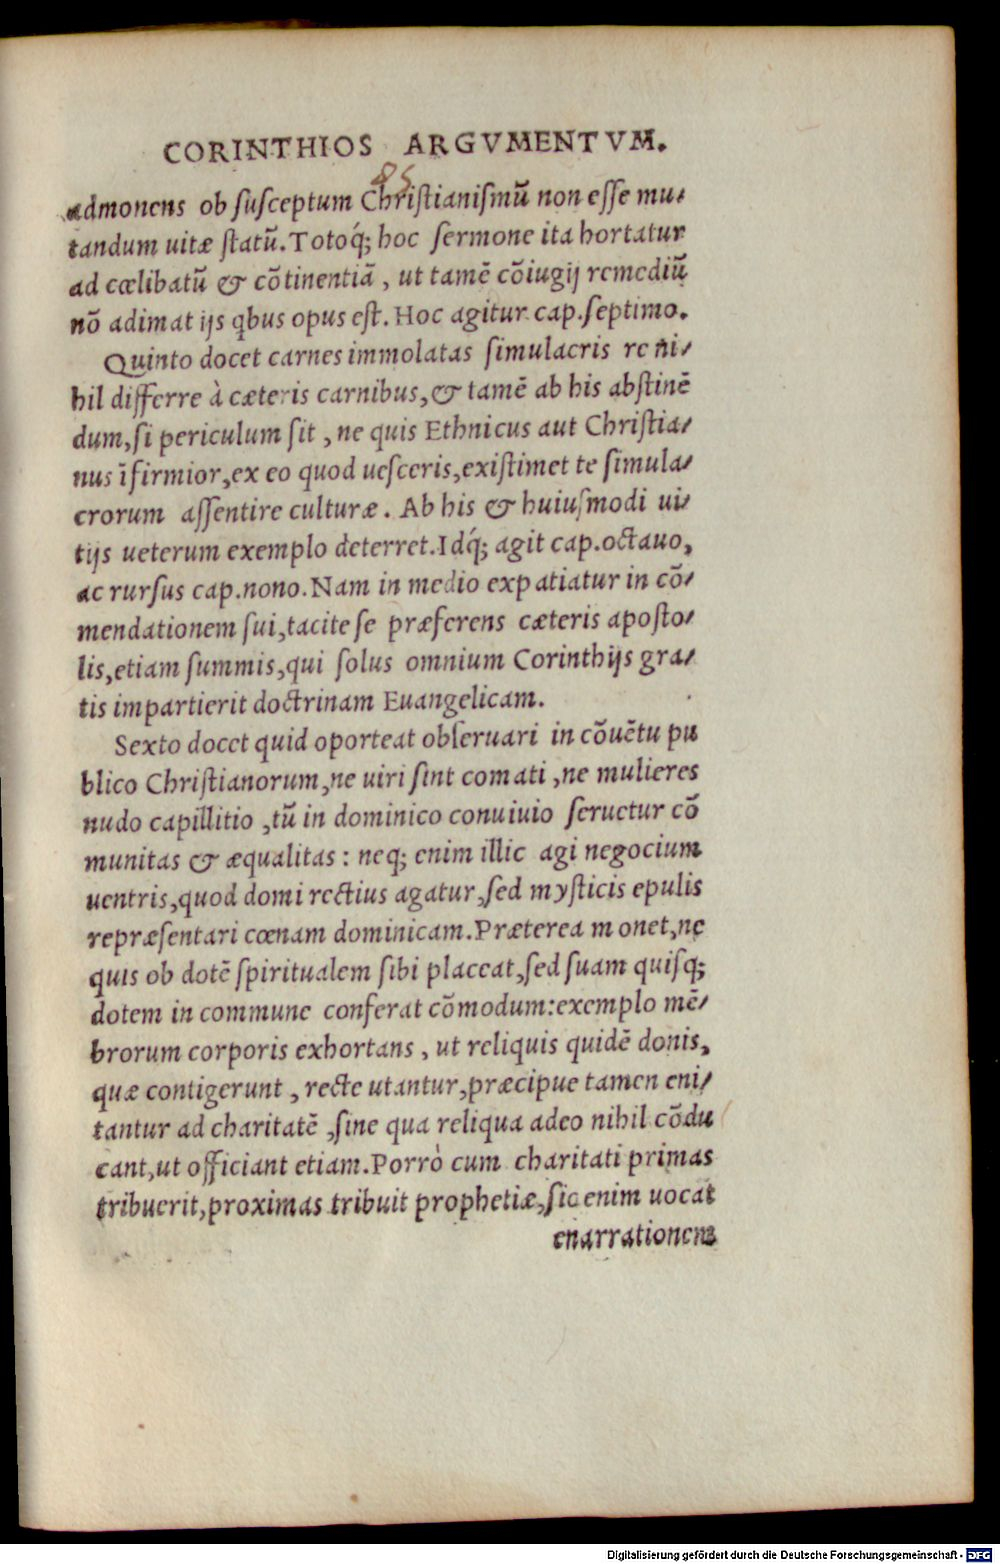 CORINTHIOS ARGVMENTVM.
85
admonens ob ſuſceptum Chriſtianiſmũ non eſſe mu-
tandum uitæ ſtatũ. Totoq́; hoc ſermone ita hortatur
ad cœlibatũ & cõtinentiã, ut tamẽ cõiugij remediũ
nõ adimat ijs qbus opus eſt. Hoc agitur cap. ſeptimo.
Quinto docet carnes immolatas ſimulacris re ni-
hil differre à cæteris carnibus, & tamẽ ab his abſtinẽ
dum, ſi periculum ſit, ne quis Ethnicus aut Chriſtia-
nus ĩfirmior, ex eo quod ueſceris, exiſtimet te ſimula-
crorum aſſentire culturæ. Ab his & huiuſmodi ui-
tijs ueterum exemplo deterret. Idq́; agit cap. octauo,
ac rurſus cap. nono. Nam in medio expatiatur in cõ-
mendationem ſui, tacite ſe præferens cæteris apoſto-
lis, etiam ſummis, qui ſolus omnium Corinthijs gra-
tis impartierit doctrinam Euangelicam.
Sexto docet quid oporteat obſeruari in cõuẽtu pu
blico Chriſtianorum, ne uiri ſint comati, ne mulieres
nudo capillitio, tũ in dominico conuiuio ſeruetur cõ
munitas & æqualitas: neq; enim illic agi negocium
uentris, quod domi rectius agatur, ſed myſticis epulis
repræſentari cœnam dominicam. Præterea monet, ne
quis ob dotẽ ſpiritualem ſibi placeat, ſed ſuam quiſq;
dotem in commune conferat cõmodum: exemplo mẽ-
brorum corporis exhortans, ut reliquis quidẽ donis,
quæ contigerunt, recte utantur, præcipue tamen eni-
tantur ad charitatẽ, ſine qua reliqua adeo nihil cõdu
cant, ut officiant etiam. Porrò cum charitati primas
tribuerit, proximas tribuit prophetiæ, ſic enim uocat
enarrationem
Digitalisierung gefördert durch die Deutsche Forschungsgemeinschaft - DFG